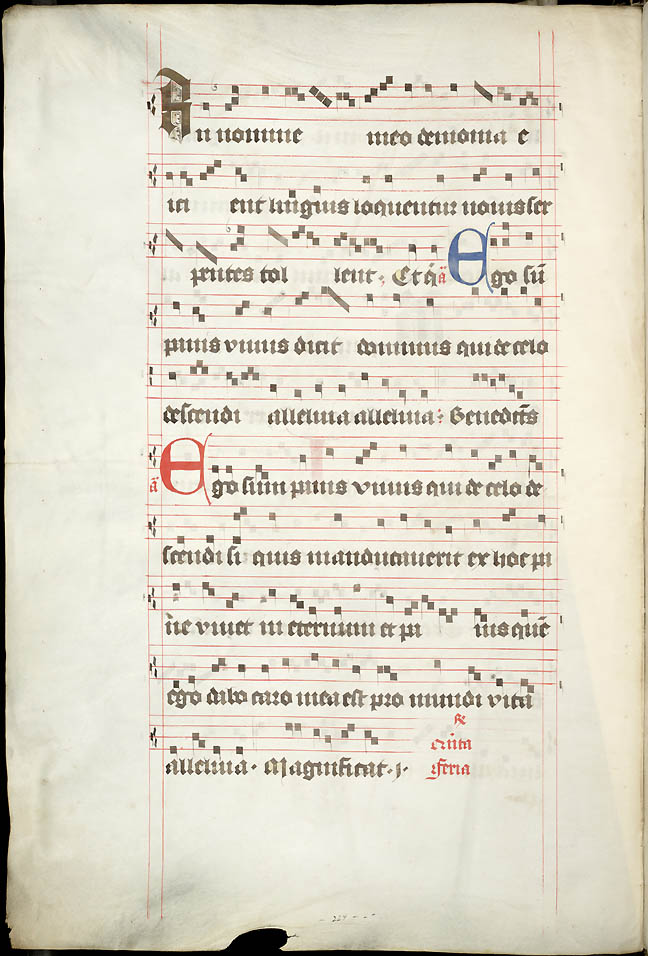 In nomine meo demonia e
ici ent linguis loquentur novis ser
pentes tol lent. Et q̃ ã Ego sũ
panis vivus dicit dominus qui de celo
descendi alleluia alleluia. Benedictũs
ã Ego sum panis vivus qui de celo de
scendi si quis manducaverit ex hoc pa
ne vivet in eternum et pa nis quẽ
ego dabo caro mea est pro mundi vita
alleluia. Magnificat.
feria